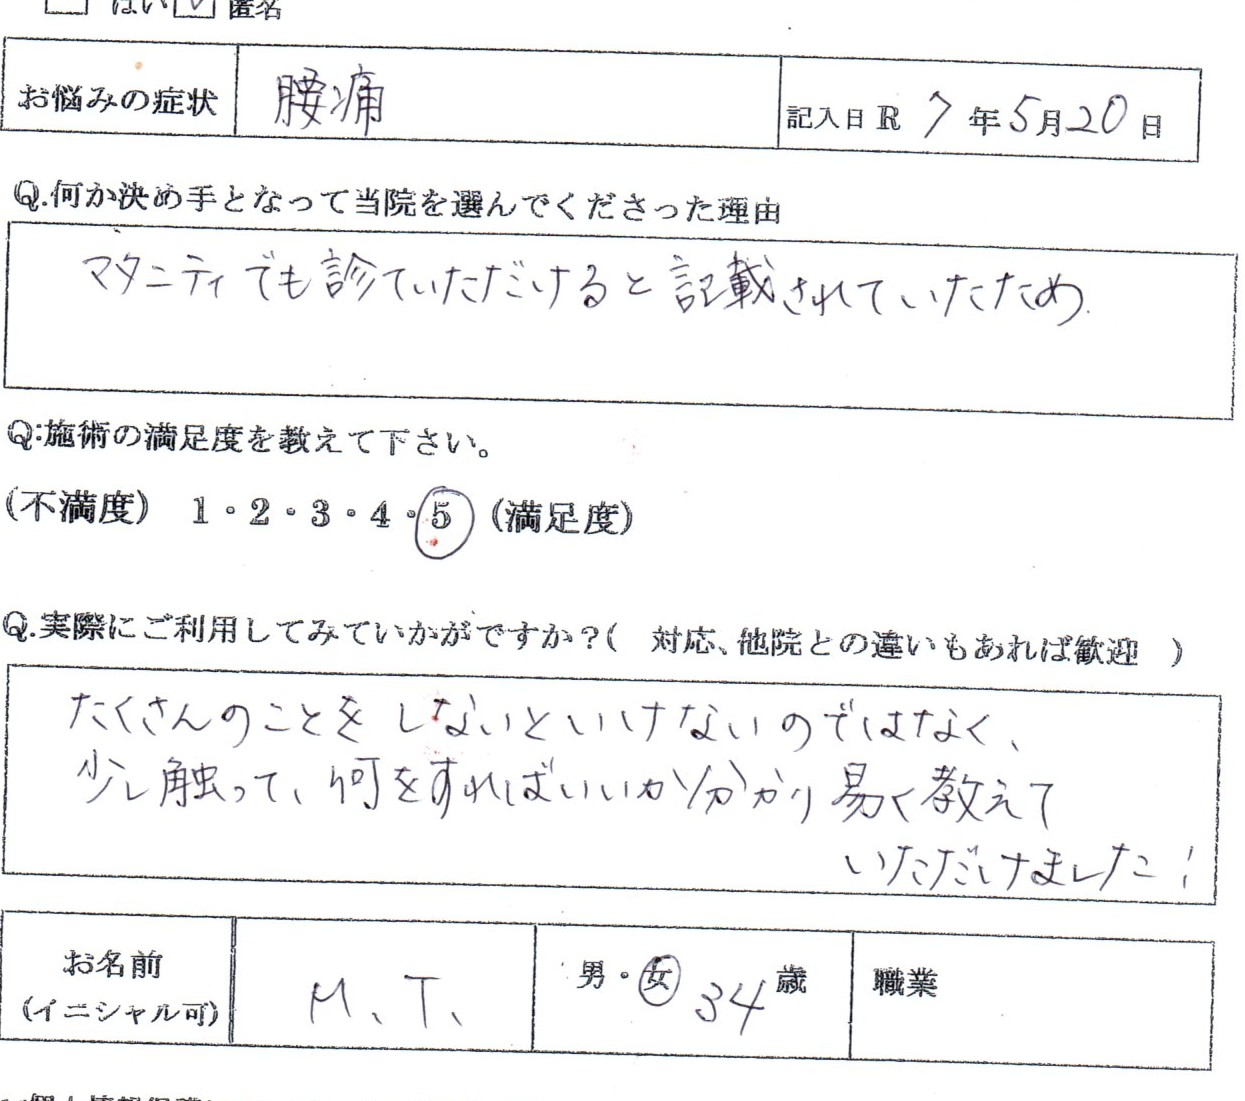 はい ☑ 匿名
お悩みの症状 腰痛 記入日 R 7 年 5 月 20 日
Q.何か決め手となって当院を選んでくださった理由
マタニティでも診ていただけると記載されていたため.
Q:施術の満足度を教えて下さい。
(不満度) 1・2・3・4・5 (満足度)
Q.実際にご利用してみていかがですか?( 対応、他院との違いもあれば歓迎 )
たくさんのことをしないといけないのではなく、
少し触って、何をすればいいか分かり易く教えて
いただけました!
お名前 M、T、 男・女 34 歳 職業
(イニシャル可)